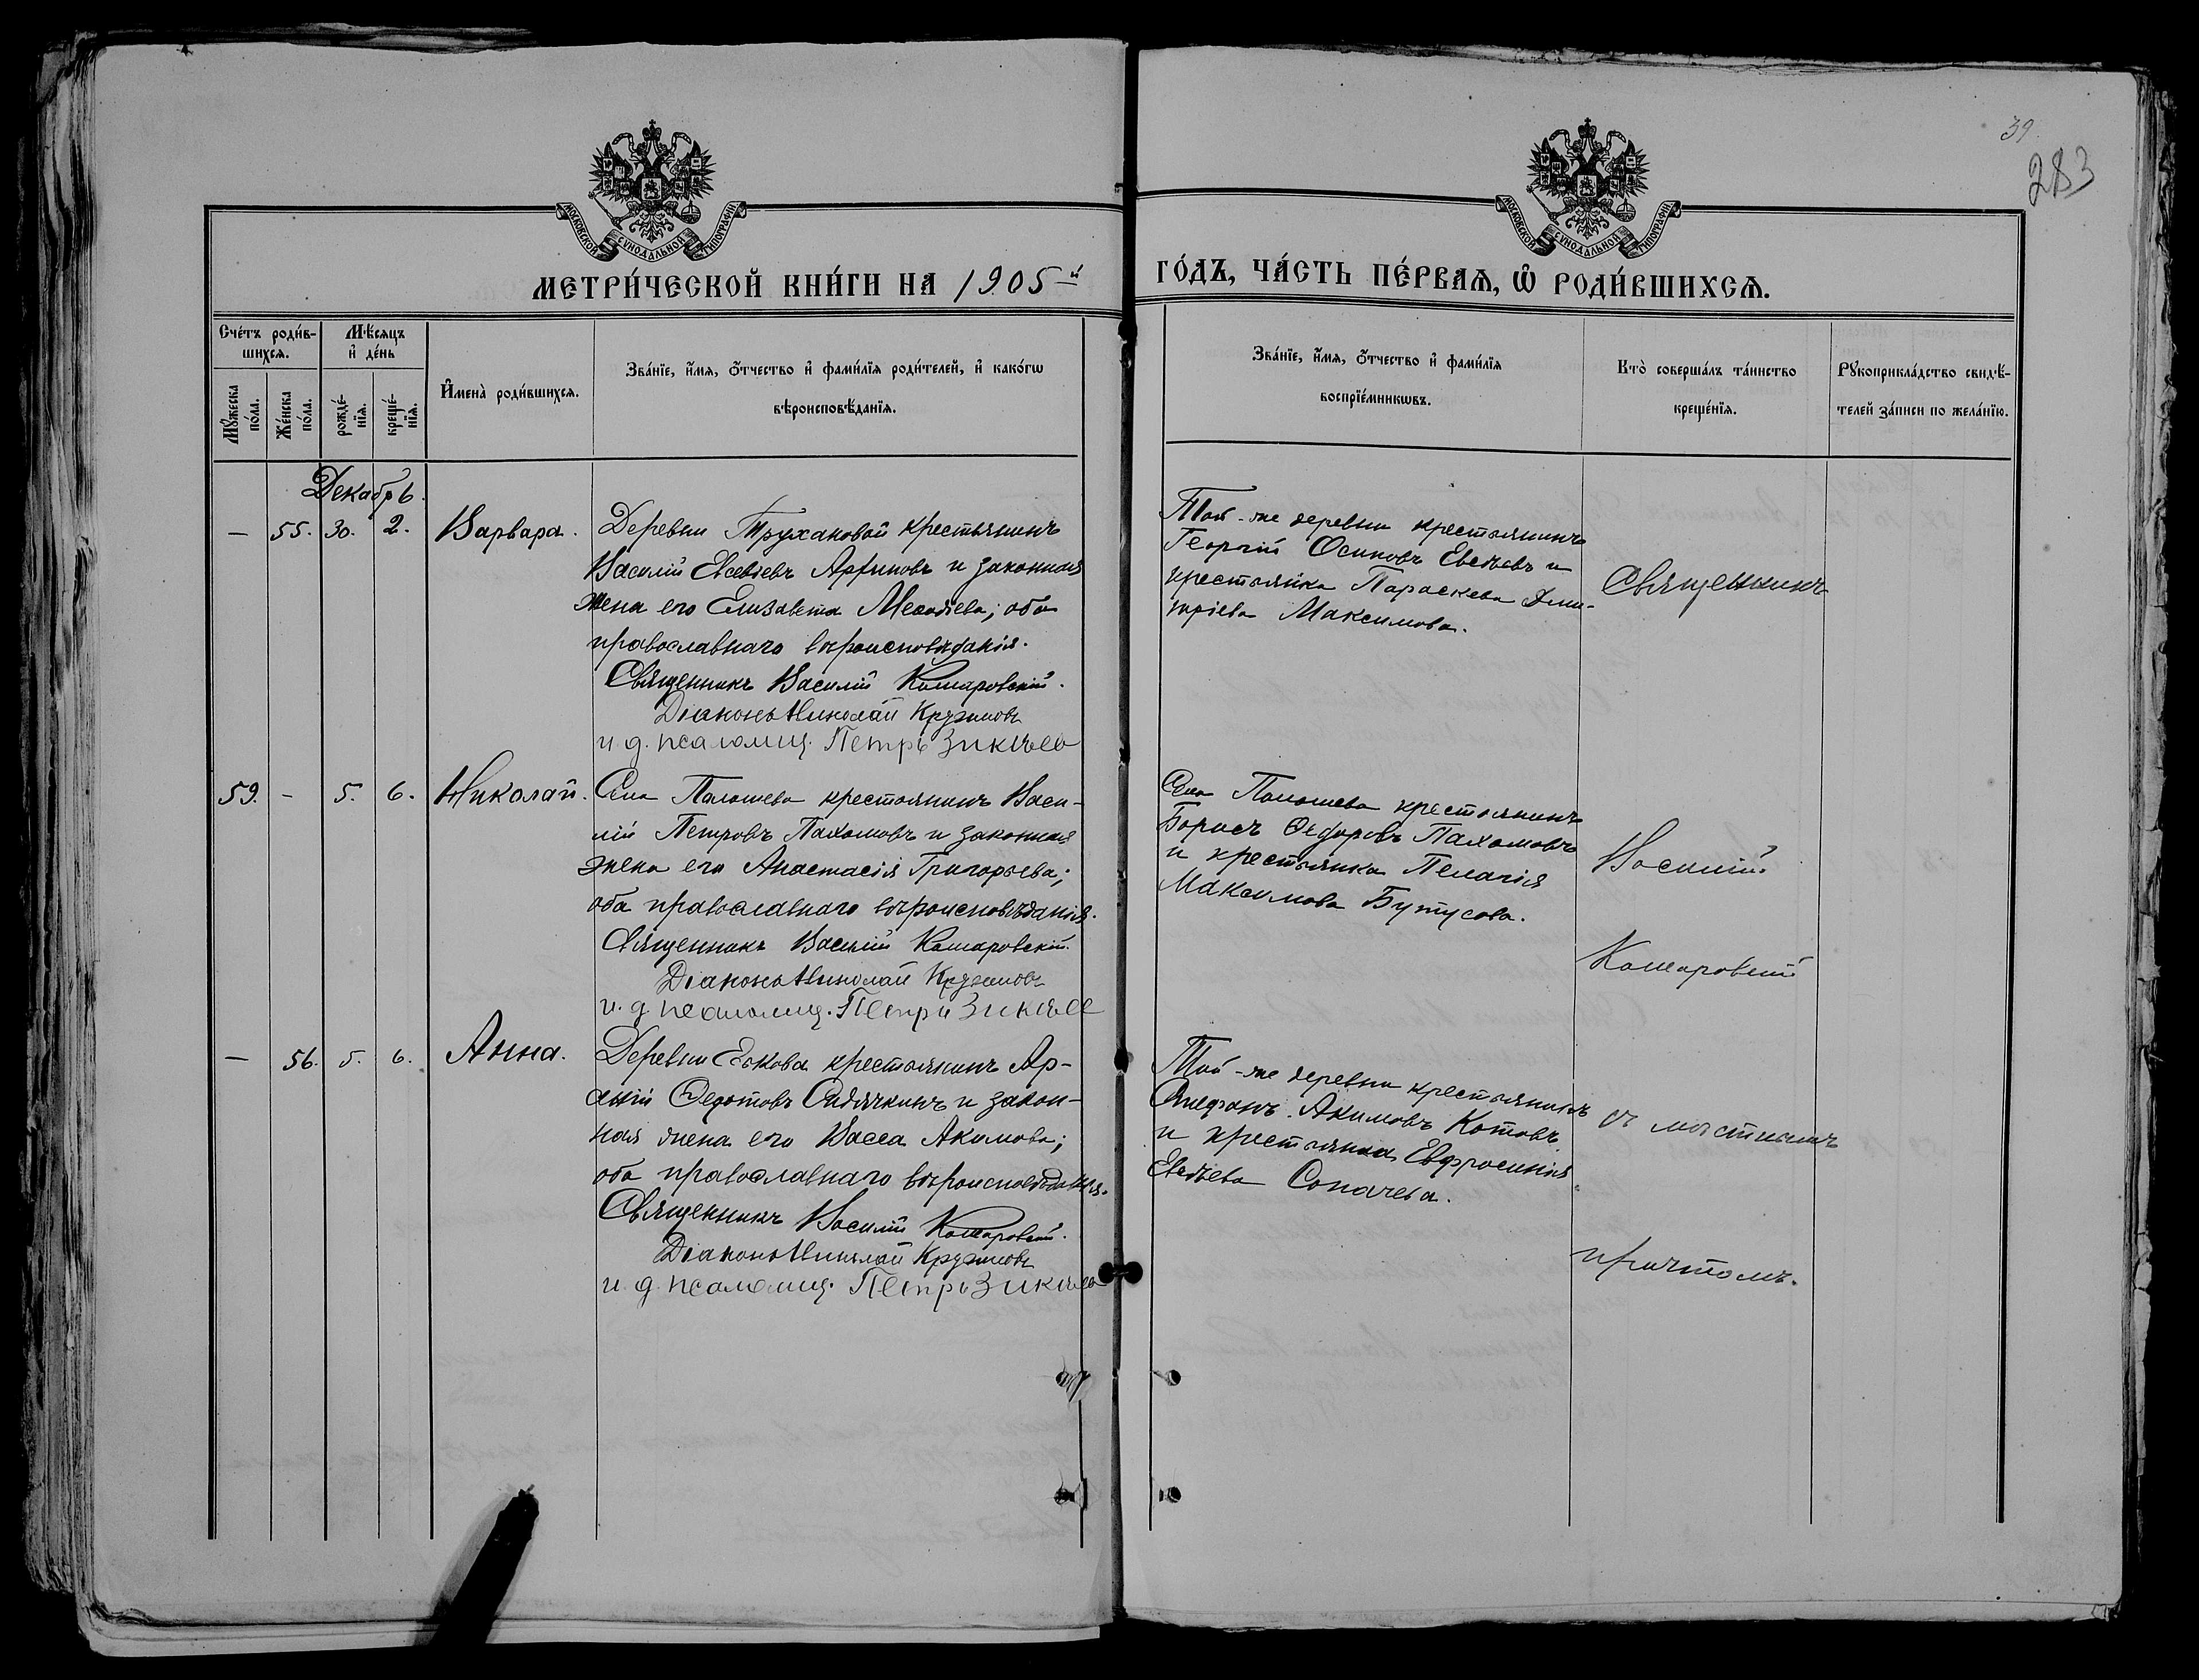 39.
283
МОСКОВСКОЙ СУНОДАЛЬНОЙ ТИПОГРАФІИ
МОСКОВСКОЙ СУНОДАЛЬНОЙ ТИПОГРАФІИ
МЕТРИ́ЧЕСКОЙ КНИ́ГИ НА 1905-й
ГО́ДЪ, ЧА́СТЬ ПЕ́РВАѦ, Ѡ҆ РОДИ́ВШИХСѦ.
Сче́тъ роди́в-
шихсѧ.
Мѣ́сѧцъ
и҆ де́нь
Мꙋ́жеска
по́ла.
Же́нска
по́ла.
рожде́-
нїѧ.
креще́-
нїѧ.
И҆мена̀ роди́вшихсѧ.
Зва́нїе, и҆́мѧ, ѻ҆́тчество и҆ фами́лїѧ роди́телей, и҆ како́гѡ
вѣроисповѣ́данїѧ.
Зва́нїе, и҆́мѧ, ѻ҆́тчество и҆ фами́лїѧ
воспрїе́мникѡвъ.
Кто̀ соверша́лъ та́инство
креще́нїѧ.
Рꙋкоприкла́дство свидѣ́-
телей за́писи по жела́нїю.
Декабрь.
— 55. 30. 2. Варвара.
Деревни Трухановой крестьянинъ
Василій Евсевіевъ и законная
жена его Елизавета Меѳодіева; оба
православнаго вѣроисповѣданія.
Священникъ Василій Комаровскій.
Діаконъ Николай
и. д. псаломщ. Петръ Зикѣев
Той-же деревни крестьянинъ
Георгій Осиповъ Евсѣевъ и
крестьянка Параскева Дми-
тріева Максимова.
59. - 5. 6. Николай.
Села крестьянинъ Васи-
лій Петровъ Пахомовъ и законная
жена его Анастасія Григорьева;
оба православнаго вѣроисповѣданія.
Священникъ Василій Комаровскій.
Діаконъ Николай
и. д. псаломщ. Петръ Зикѣев
Села крестьянинъ
Борисъ Ѳедоровъ Пахомовъ
и крестьянка Пелагія
Максимова Бутусова.
— 56. 5. 6. Анна.
Деревни Еськова крестьянинъ Ар-
сеній Ѳедотовъ и закон-
ная жена его Васса Акимова;
оба православнаго вѣроисповѣданія.
Священникъ Василій Комаровскій.
Діаконъ Николай
и. д. псаломщ. Петръ Зикѣев
Той-же деревни крестьянинъ
Стефанъ Акимовъ Котовъ
и крестьянка Евфросинія
Евсѣева
Священникъ
Василій
Комаровскій
съ мѣстнымъ
причтомъ.